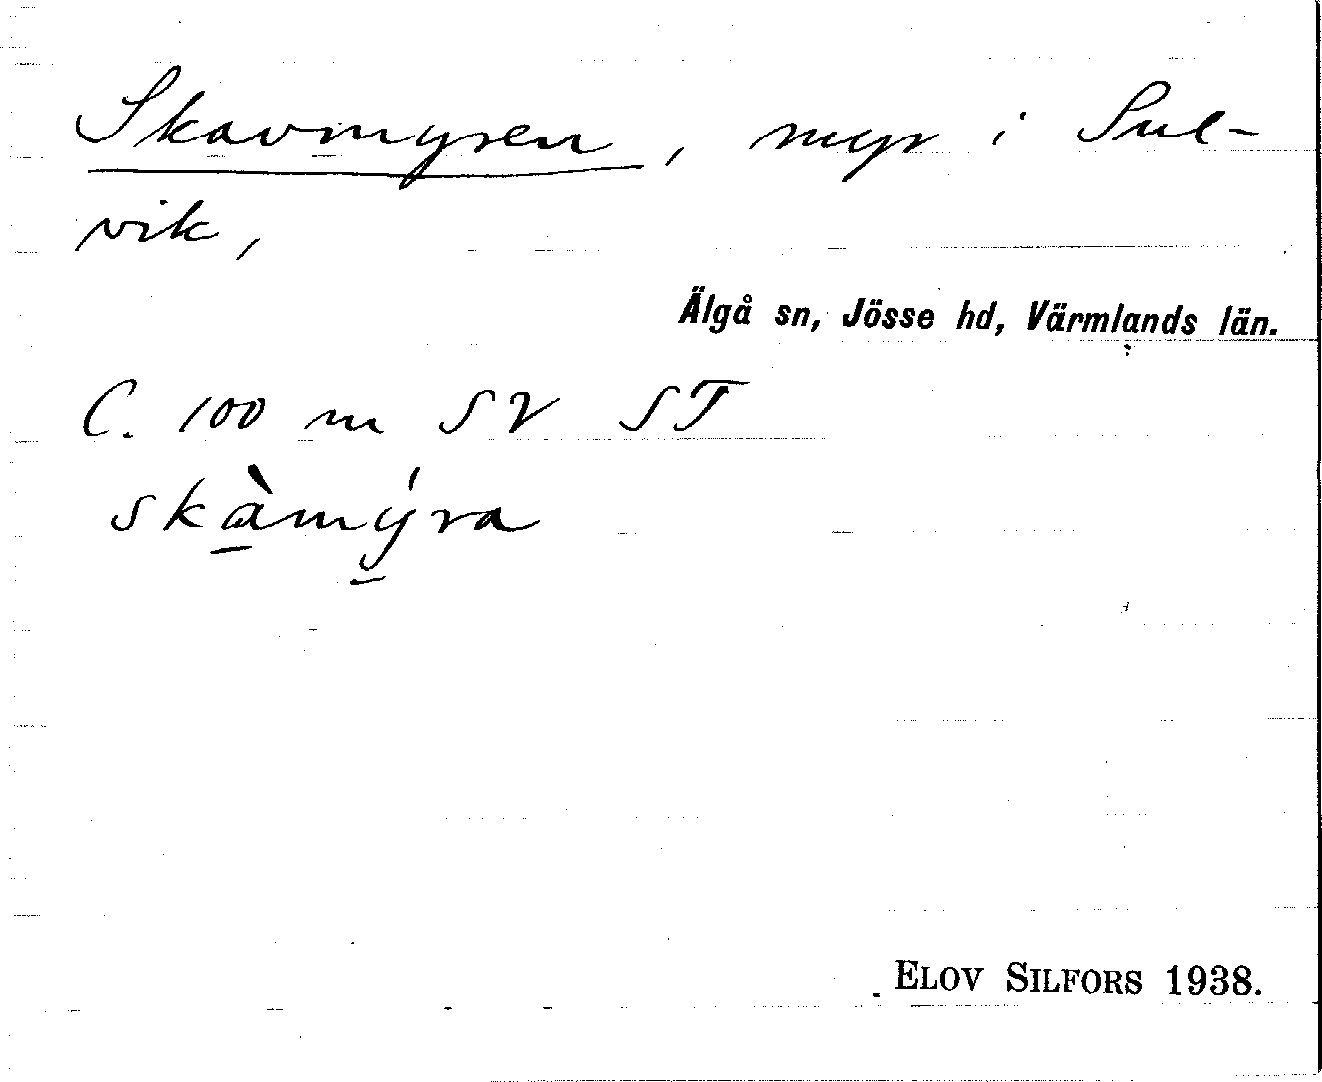 Skavmyren, myr i Sul-
vik,
Älgå sn, Jösse hd, Värmlands län.
C. 100 m SV ST
skàmýra
ELOV SILFORS 1938.